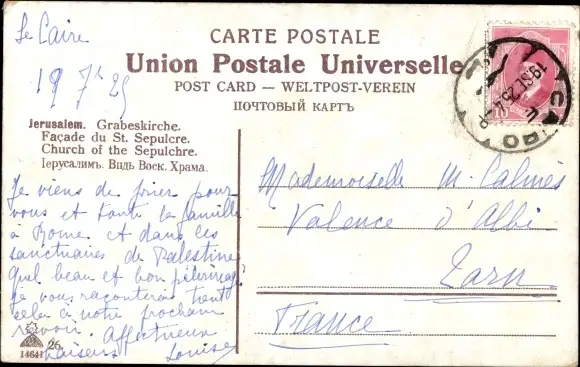 Le Caire
19 7bre 25
CARTE POSTALE
Union Postale Universelle
POST CARD — WELTPOST-VEREIN
ПОЧТОВЫЙ КАРТЪ
Jerusalem. Grabeskirche.
Façade du St. Sepulcre.
Church of the Sepulchre.
Іерусалимъ. Видъ Воск. Храма.
Je viens de prier pour
vous et toute la famille
à Rome et dans les
sanctuaires de Palestine
Quel beau et bon pèlerinage!
Je vous raconterai tout
cela à notre prochain
revoir. Affectueux
baisers Louise
26.
14641
CAIRO
Mademoiselle M. Calmès
Valence d'Albi
Tarn
France